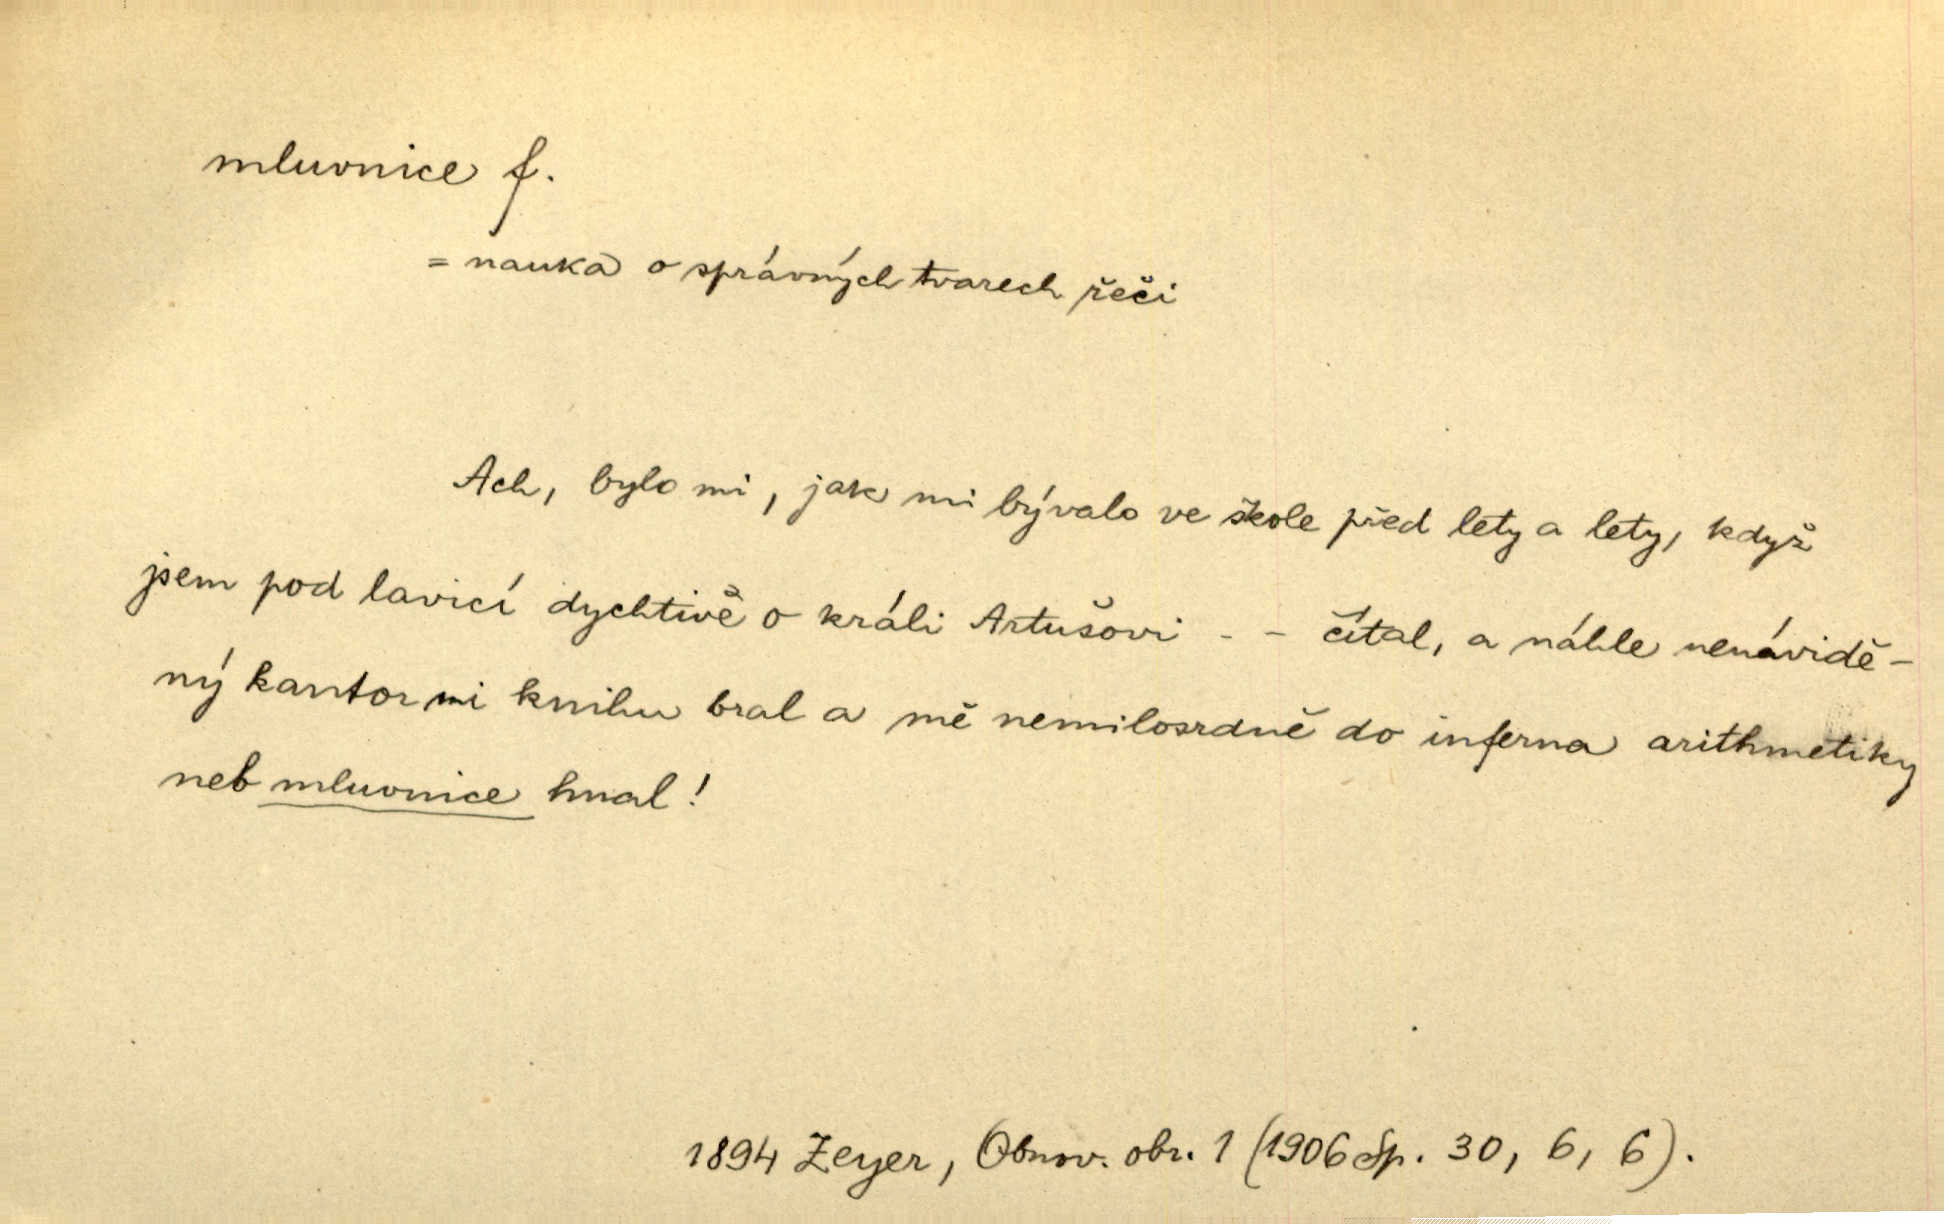 mluvnice f.
= nauka o správných tvarech řeči
Ach, bylo mi, jak mi bývalo ve škole před lety a lety, když
jsem pod lavicí dychtivě o králi Artušovi - - čítal, a náhle nenávidě-
ný kantor mi knihu bral a mě nemilosrdně do inferna arithmetiky
neb mluvnice hnal!
1894 Zeyer, Obnov. obr. 1 (1906 Sp. 30, 6, 6).